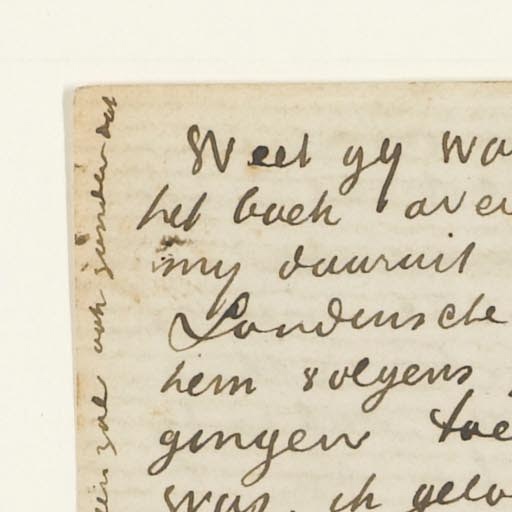 Weet gy
het boek over
my daaruit
Londensche
hem volgens
gingen toe
was. ik gelo
zal ook zonder dat